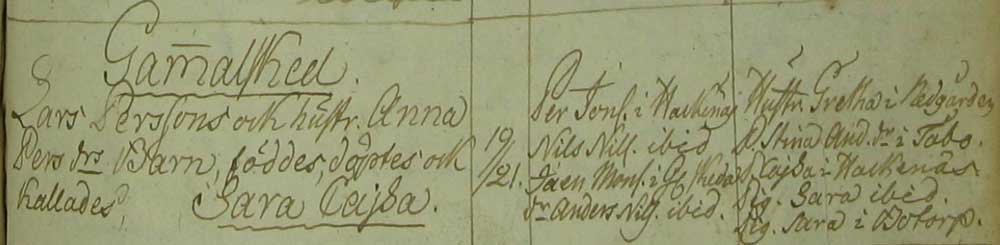 Gam̅alsked.
Lars Perssons och hustr. Anna
Pers drs Barn, föddes, döptes och
kallades, Sara Cajsa.
19/21.
Per Jons. i Hackenäs
Nils Nill. ibid
Jaen Mons. i Gl. skeda
dr Anders Nils. ibid.
Hustr. Gretha i
D. Stina And. dr i Tabo.
D. Cajsa i Hackenäs.
Pig. Sara ibid.
Pig. Sara i Botorp.